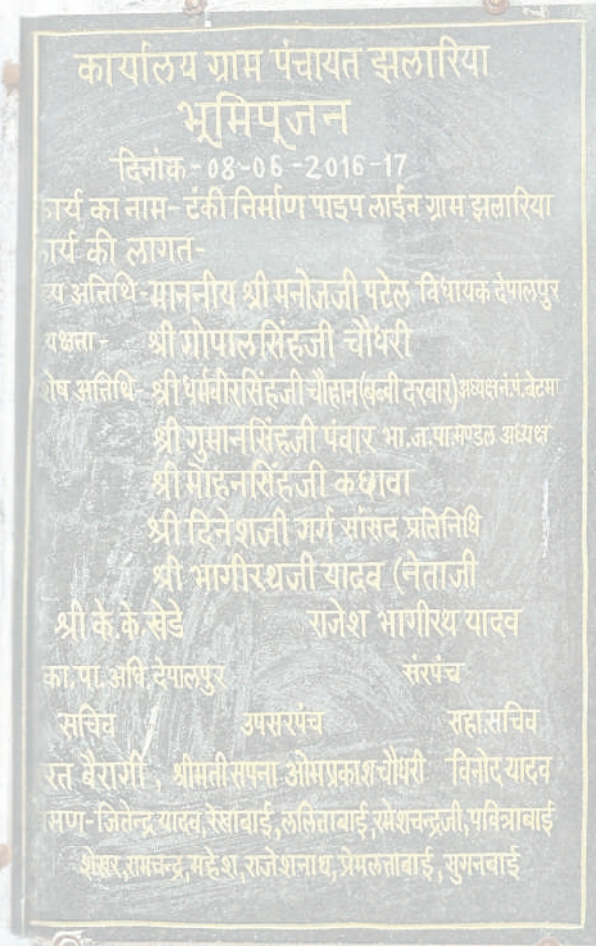 कार्यालय ग्राम पंचायत झलारिया
भूमिपूजन
दिनांक-08-06-2016-17
ार्य का नाम-टंकी निर्माण पाइप लाईन ग्राम झलारिया
ार्य की लागत-
य अतिथि-माननीय श्री मनोजजी पटेल विधायक देपालपुर
यक्षता- श्री गोपालसिंहजी चौधरी
शेष अतिथि- श्री धर्मवीरसिंहजी चौहान(बन्नी दरबार)अध्यक्ष नं.पं.बेटमा
श्री गुमानसिंहजी पंवार भा.ज.पा.मण्डल अध्यक्ष
श्री मोहनसिंहजी कछावा
श्री दिनेशजी गर्ग सांसद प्रतिनिधि
श्री भागीरथजी यादव (नेताजी
श्री के.के.खेडे राजेश भागीरथ यादव
का.पा.अधि.देपालपुर संरपंच
सचिव उपसरपंच सहा.सचिव
रत बैरागी, श्रीमती सपना ओमप्रकाश चौधरी विनोद यादव
मण-जितेन्द्र यादव,रेखाबाई,ललिताबाई,रमेशचन्द्रजी,पवित्राबाई
शेखर,रामचन्द्र,महेश,राजेशनाथ,प्रेमलताबाई,सुगनबाई